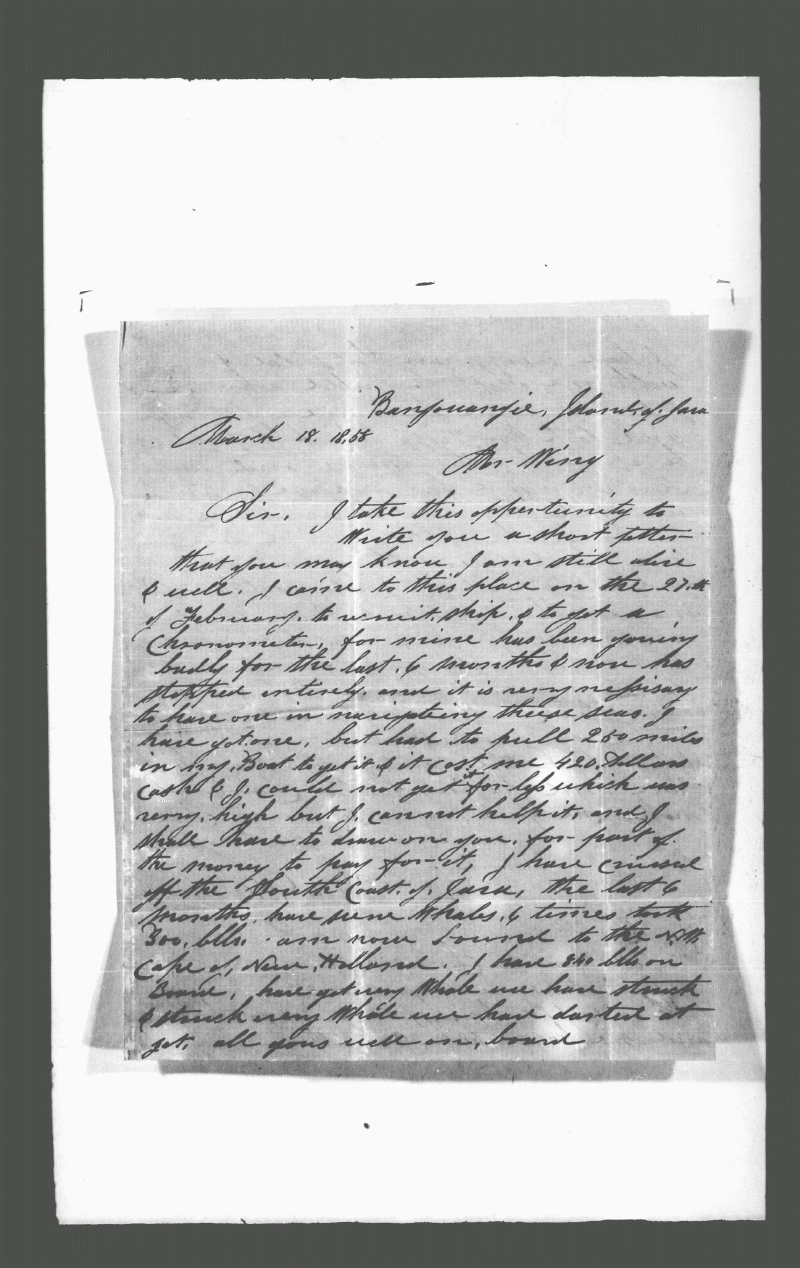 Banjouanjie, Island, of, Java
March 18. 18,58
Mr Wing
Sir. I take this oppertunity to
Write you a short letter
that you may know I am still alive
& well. I came to this place on the 27.th
of February. to recruit. ship. & to get a
Chronometer, for mine has been going
badly for the last. 6 months & now has
stopped intirely. and it is very nessisary
to have one in navigateing theese seas. I
have got one, but had to pull 250 miles
in my. Boat to get it & it cost me 420. Dollars
cash & I. could not get it for less which was
very. high but I. cannot help it, and I
shall have to draw on you. for part of
the money to pay for it, I have cruised
off the South Coast. of. Java, the last 6
months. have seene Whales. 6 times took
300. blls. am now bound to the N.W.
Cape of, New, Holland. I have 840 blls on
Board, have got evry Whale we have struck
& struck evry Whale we have darted at
yet. all goes well on, board